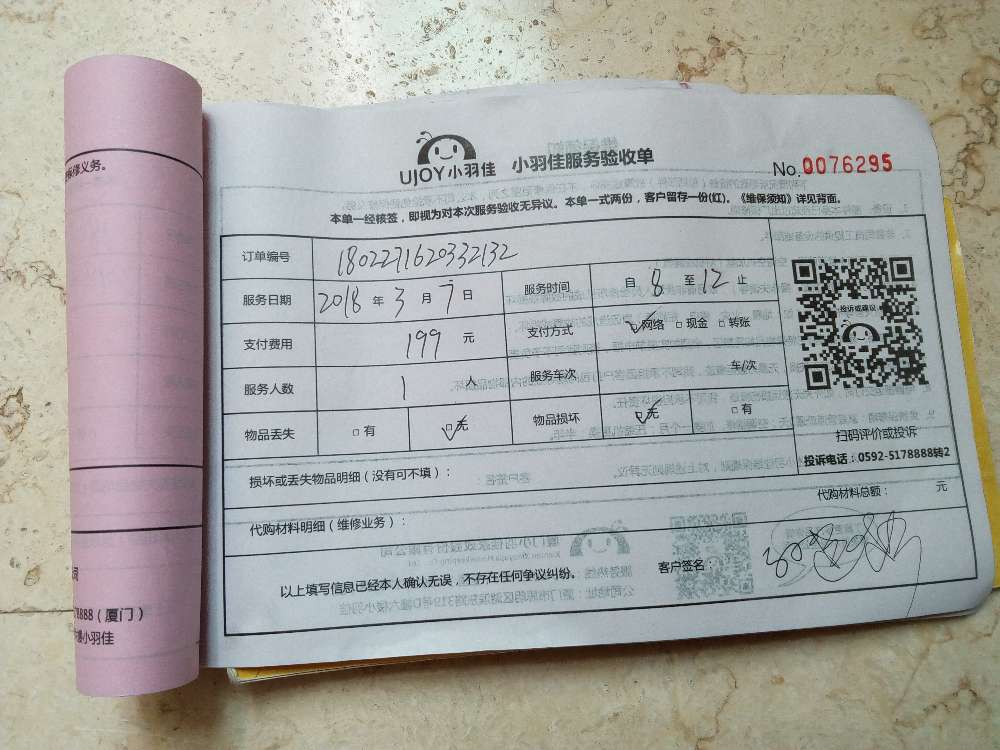 UJOY小羽佳 小羽佳服务验收单
No.0076295
本单一经核签，即视为对本次服务验收无异议。本单一式两份，客户留存一份(红)。《维保须知》详见背面。
订单编号 1802271620332132
服务日期 2018 年 3 月 7 日 服务时间 自 8 至 12 止
支付费用 199 元 支付方式 ☑网络 □现金 □转账
服务人数 1 人 服务车次 车/次
物品丢失 □有 ☑无 物品损坏 ☑无 □有
投诉或建议
扫码评价或投诉
投诉电话：0592-5178888转2
损坏或丢失物品明细（没有可不填）：
代购材料明细（维修业务）： 代购材料总额： 元
以上填写信息已经本人确认无误，不存在任何争议纠纷。 客户签名：
保修义务。
78888（厦门）
楼小羽佳